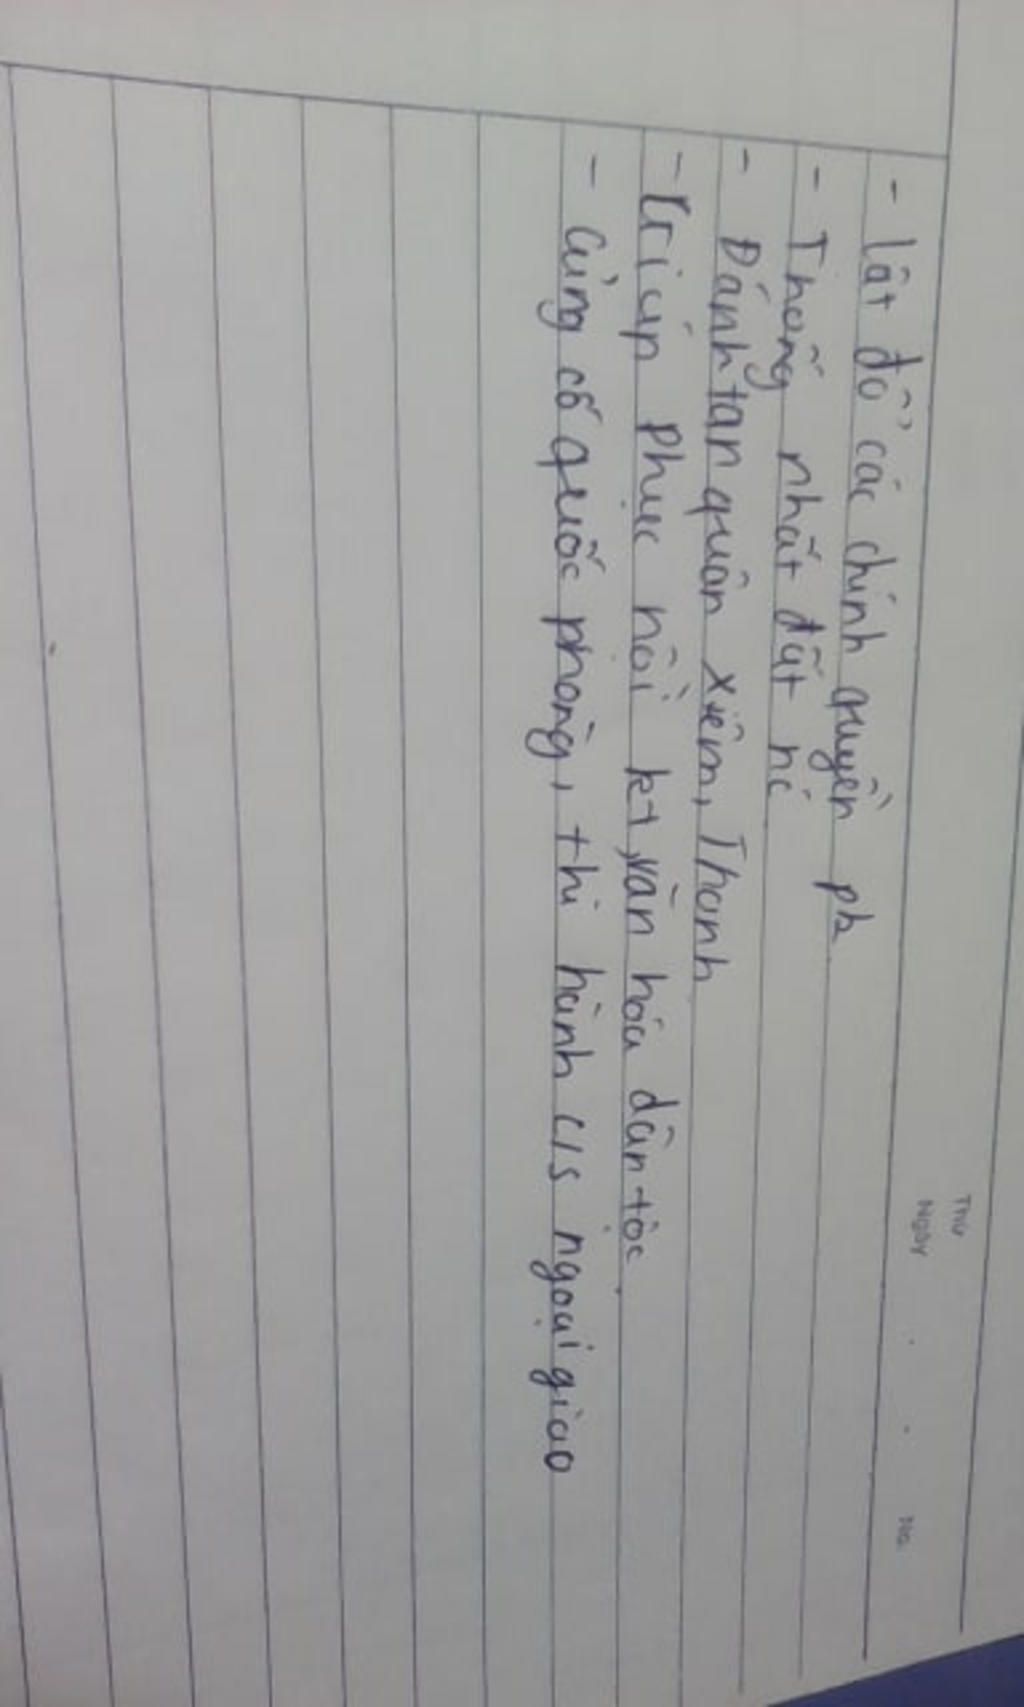 Thứ
Ngày . . No.
- lật đổ các chính quyền pk
- Thống nhất đất nc
- Đánh tan quân xiêm, Thanh
- phục hồi kt, văn hóa dân tộc.
- Củng cố quốc phòng, thi hành c/s ngoại giao